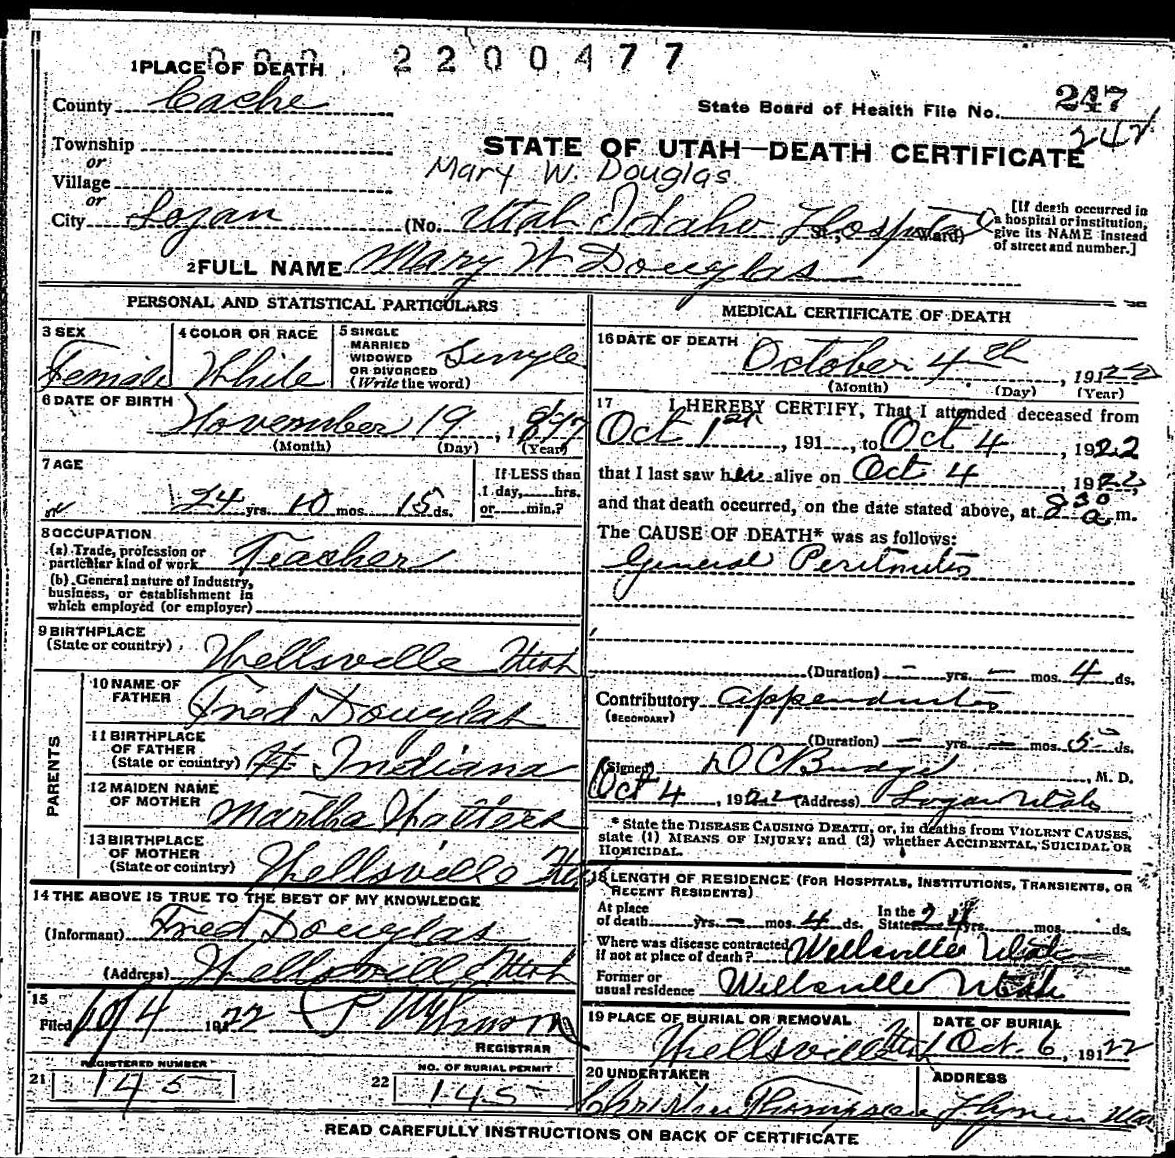 2200477
1 PLACE OF DEATH
County Cache
State Board of Health File No. 247
242
Township
or
STATE OF UTAH—DEATH CERTIFICATE
Village
Mary W. Douglas
or
City Logan (No. Utah Idaho Hospital St., Ward)
[If death occurred in a hospital or institution, give its NAME instead of street and number.]
2 FULL NAME Mary W Douglas
PERSONAL AND STATISTICAL PARTICULARS
3 SEX Female
4 COLOR OR RACE White
5 SINGLE MARRIED WIDOWED OR DIVORCED (Write the word) Single
6 DATE OF BIRTH November 19, 1897
(Month) (Day) (Year)
7 AGE
24 yrs. 10 mos. 15 ds.
If LESS than 1 day,......hrs. or......min.?
8 OCCUPATION
(a) Trade, profession or particular kind of work Teacher
(b) General nature of Industry, business, or establishment in which employed (or employer)
9 BIRTHPLACE (State or country) Wellsville Utah
PARENTS
10 NAME OF FATHER Fred Douglas
11 BIRTHPLACE OF FATHER (State or country) Indiana
12 MAIDEN NAME OF MOTHER Martha
13 BIRTHPLACE OF MOTHER (State or country) Wellsville
14 THE ABOVE IS TRUE TO THE BEST OF MY KNOWLEDGE
(Informant) Fred Douglas
(Address) Wellsville Utah
15
Filed 10/4 1922
REGISTRAR
REGISTERED NUMBER
21 145
NO. OF BURIAL PERMIT
22 145
MEDICAL CERTIFICATE OF DEATH
16 DATE OF DEATH October 4th, 1922
(Month) (Day) (Year)
17 I HEREBY CERTIFY, That I attended deceased from
Oct 1st, 191..., to Oct 4, 1922
that I last saw her alive on Oct 4, 1922,
and that death occurred, on the date stated above, at 8 30 a m.
The CAUSE OF DEATH* was as follows:
General Peritonitis
(Duration) – yrs. – mos. 4 ds.
Contributory Appendicitis
(SECONDARY)
(Duration) – yrs. – mos. 5 ds.
(Signed) D C Budge, M. D.
Oct 4, 1922 (Address) Logan Utah
* State the DISEASE CAUSING DEATH, or, in deaths from VIOLENT CAUSES,
state (1) MEANS OF INJURY; and (2) whether ACCIDENTAL, SUICIDAL OR
HOMICIDAL.
18 LENGTH OF RESIDENCE (FOR HOSPITALS, INSTITUTIONS, TRANSIENTS, OR
RECENT RESIDENTS)
At place of death yrs. – mos. 4 ds. In the State 24 yrs. mos. ds.
Where was disease contracted if not at place of death? Wellsville Utah
Former or usual residence Wellsville Utah
19 PLACE OF BURIAL OR REMOVAL Wellsville Utah
DATE OF BURIAL Oct. 6, 1922
20 UNDERTAKER
ADDRESS
READ CAREFULLY INSTRUCTIONS ON BACK OF CERTIFICATE